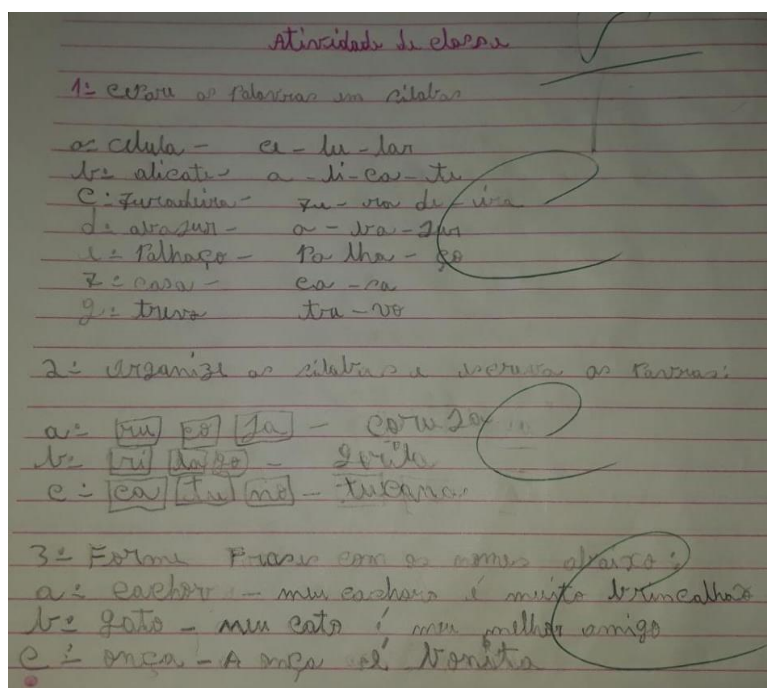 Atividade de classe
1= cepare as Palavras em cilabas
a= celula - ce - lu - lar
b= alicate - a - li - ca - te
c= furadeira - fu - ra de - ira
d= abajur - a - ba - jur
e= Palhaço - Pa lha - ço
f= casa - ca - sa
g= trevo tre - vo
2= organize as cilabas e escreva as Pavras:
a= ru co ja - coruja
b= ri la go - gorila
c= ca tu no - tucano
3= Forme Frases com os nomes abaixo:
a= cachor - meu cachoro é muito brincalhao
b= gato - meu cato é meu melhor amigo
c= onça - A onça é bonita